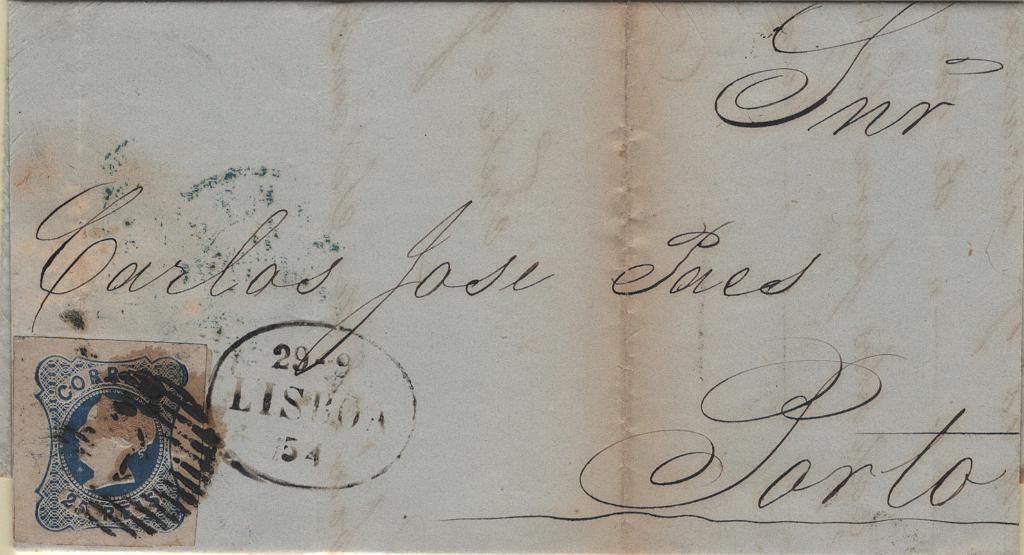 Snr
Carlos Jose Paes
Porto
29-9
LISBOA
54
CORREIO
25 REIS